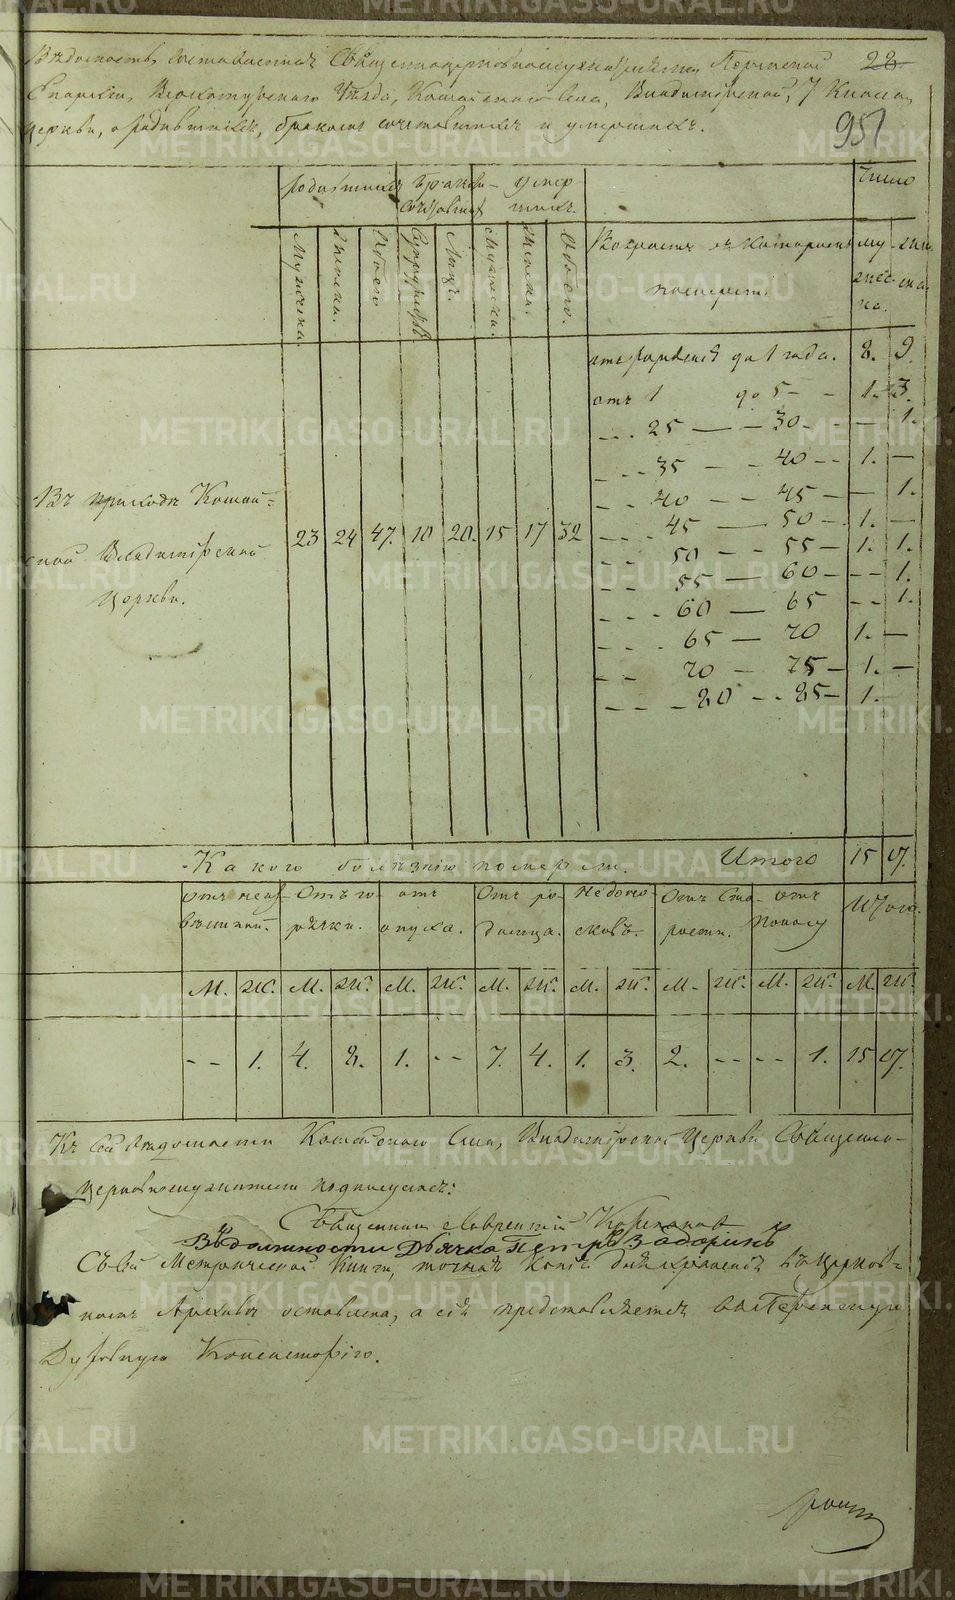 Вѣдомость, составленная Священноцерковнослужителями, Пермской
Епархіи, Верхотурскаго Уѣзда, Кошайскаго села, Владимірской, 7 Класса,
Церкви, о родившихся, бракомъ сочетавшихся и умершихъ.
22
951
родившихся
бракомъ сочетавшихся
умершихъ
Возрастъ въ которомъ померли
число
Мужеска.
Женска.
Обоего
Супружествъ
Лицъ
Мужеска.
Женска.
Обоего.
мужеска.
женска.
Въ приходѣ Кошай-
ской Владимірской
Церкви.
23 24 47. 10 20. 15 17 32
отъ рожденія до 1 года. 8. 9.
отъ 1 до 5 - - 1. 3.
- - . 25 — - 30 - - — 1.
- - 35 - - 40 - - 1. —
- - 40 - - 45 - — 1.
- - . 45 — 50 - . 1. —
- - 50 - - 55 - 1. 1.
- - 55 — 60 - - - 1.
- - . 60 — 65 - - 1.
- - . 65 — 70 1. —
- - 70 - 75 - 1. —
- - - 80 - - 85 - 1.
Какого болѣзнію померли. Итого 15 17.
отъ неиз-
вѣстной.
Отъ го-
рячки.
отъ
опуха.
Отъ ро-
димца.
Недоно-
сковъ.
Отъ Ста-
рости.
отъ
поносу
Итого.
М. Ж. М. Ж. М. Ж. М. Ж. М. Ж. М. Ж. М. Ж. М. Ж.
- - 1. 4. 8. 1. - - 7. 4. 1. 3. 2. - - - - 1. 15 17.
Къ сей вѣдомости Кошайскаго Села, Владимірской Церкви Священно-
церковнослужители подписуемся:
Священникъ Лаврентій
Въ должности Дьячка Петръ Задоринъ
Съ сей Метрической Книги, точная копія въ Церков-
номъ Архивѣ оставлена, а сія представляется въ Пермскую
Духовную Консисторію.
METRIKI.GASO-URAL.RU